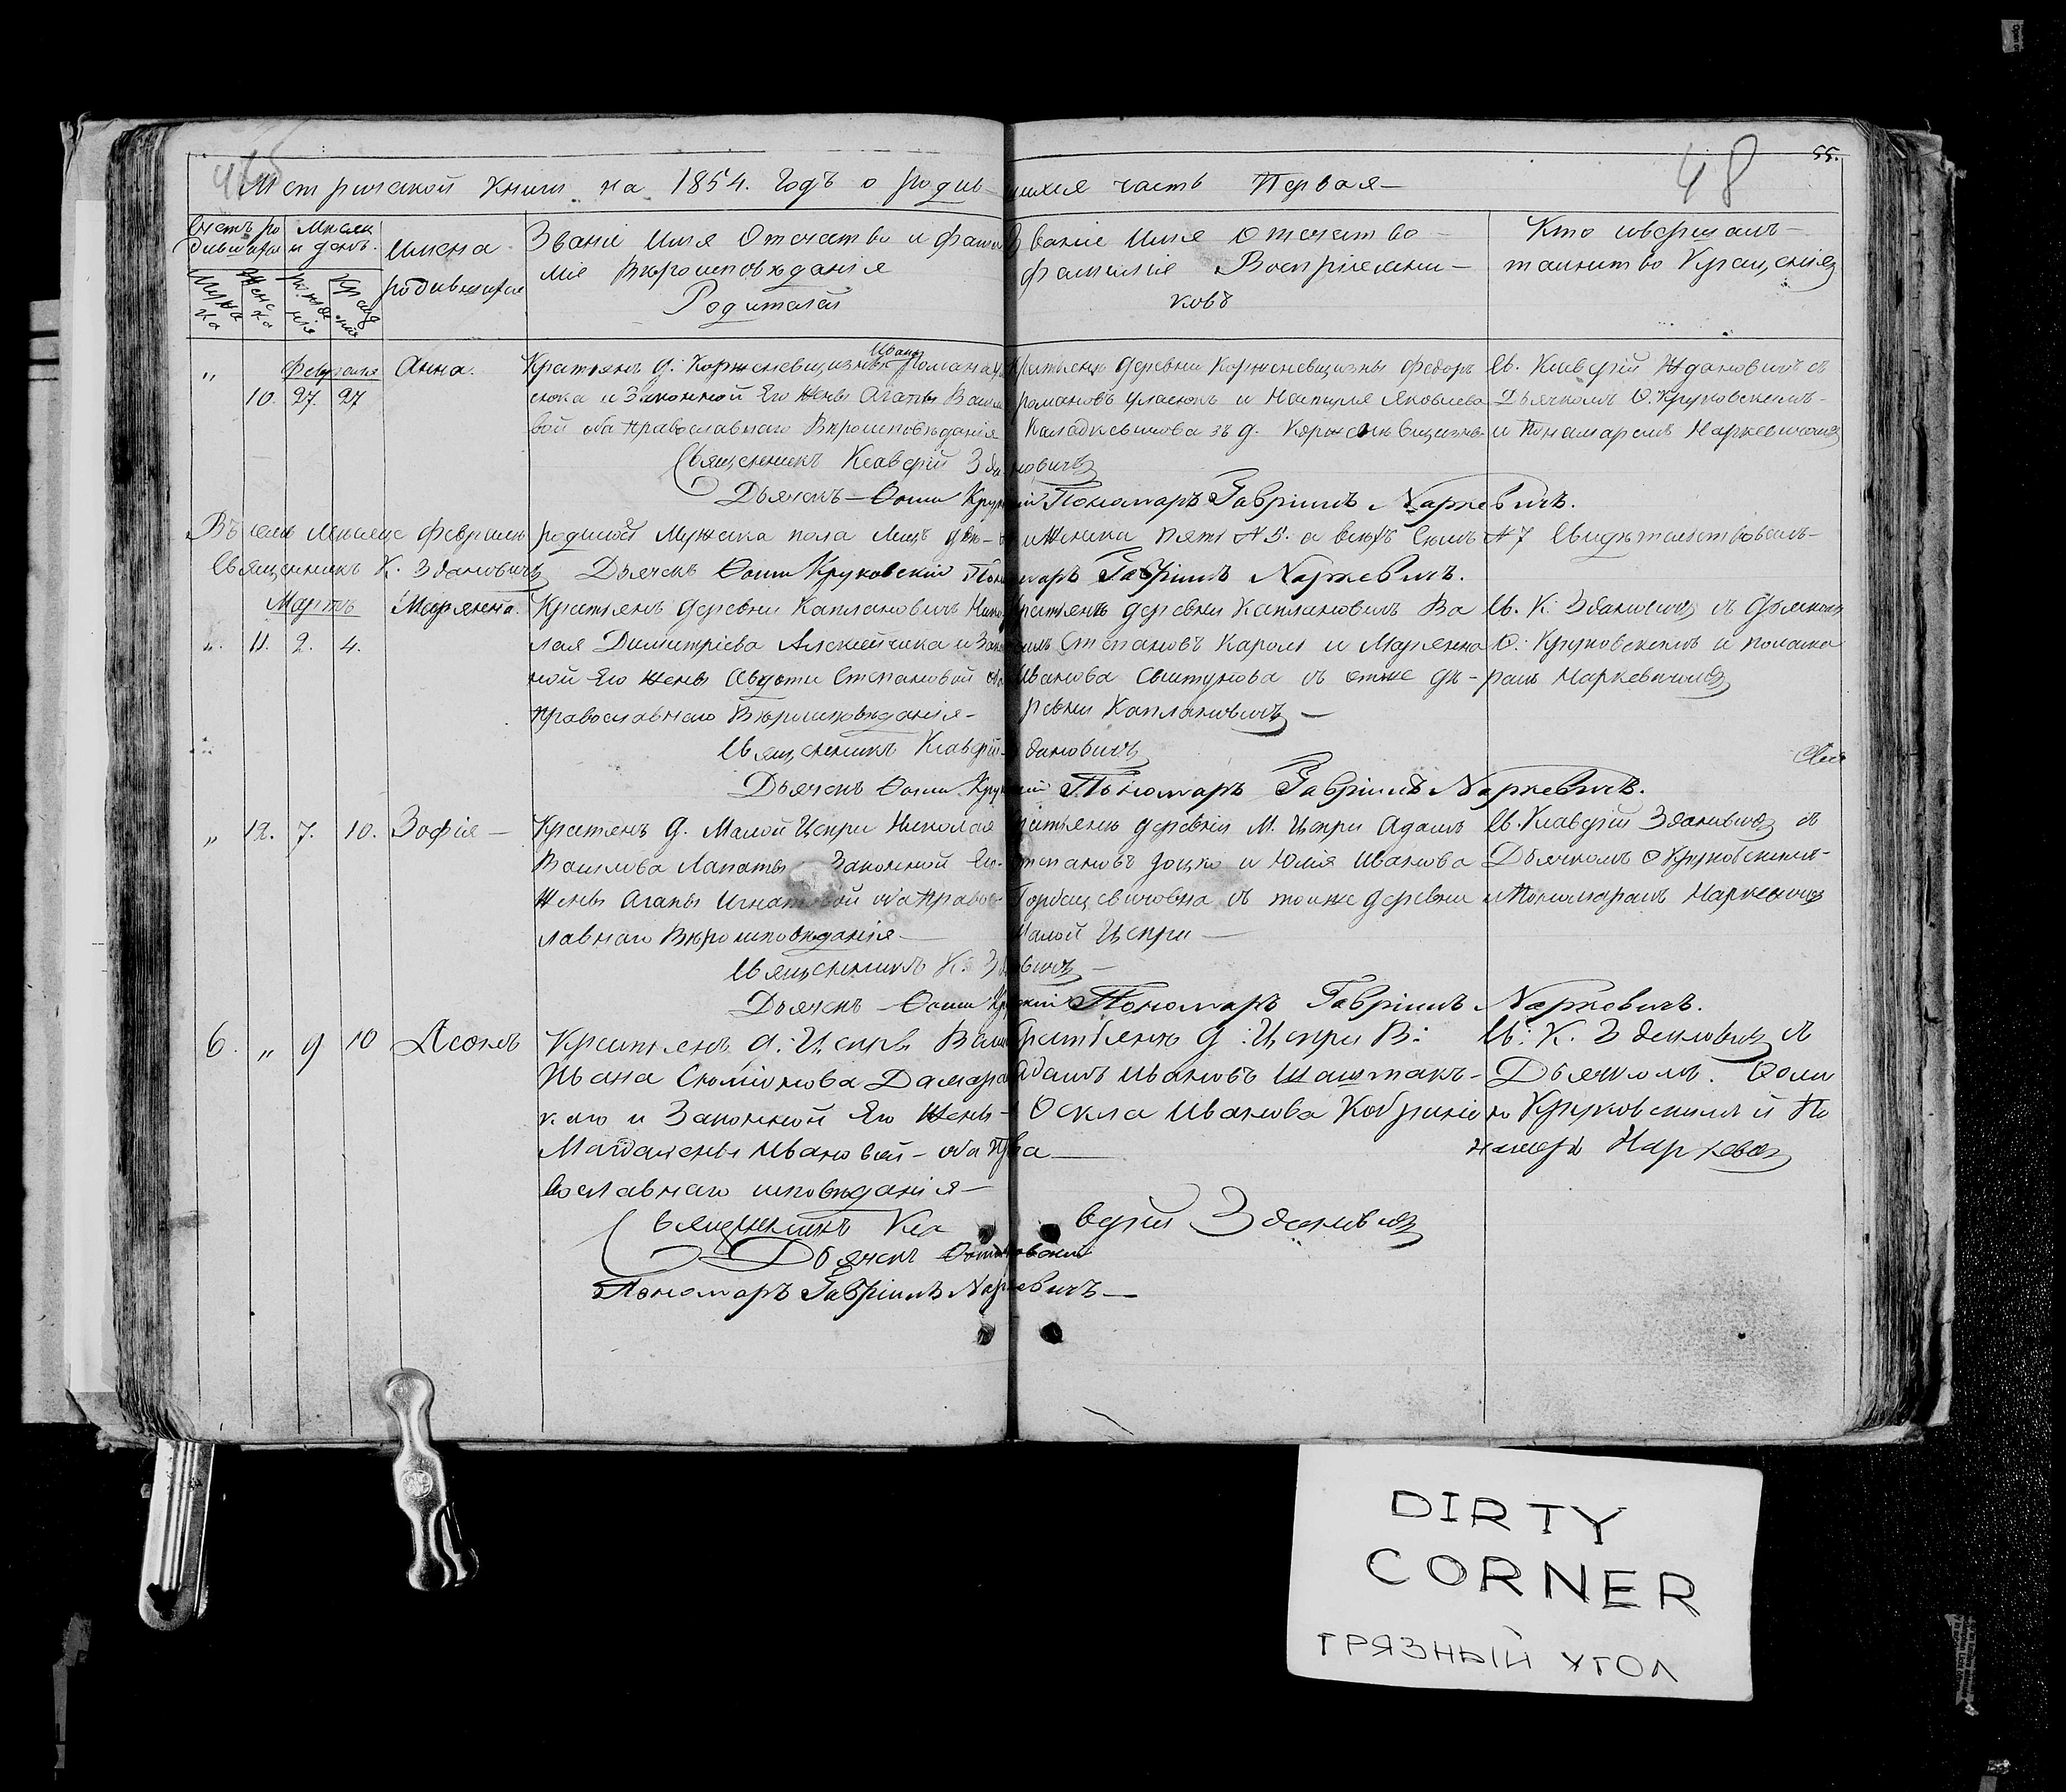 48
55.
Метрической книги на 1854. Годъ о родив-шихся часть Первая-
Счетъ ро-дившихся
Мѣсяц и день.
Имена родившихся
Званіе Имя Отечатво и фами-лія Вѣроисповѣданія Родителей
Званіе Имя Отечетво - фамилія Воспріемни-ковъ
Кто совершалъ таинство Крещенія
Мужска
Женска
Рожденія
Крещенія
Февраля
„ 10. 27. 27
Анна.
Крестянъ д: Корженевщизны Ивана Романа
и Законной Его жены Агапы Васил
вой оба православнаго Вѣроисповѣданія
Крестьянъ деревни Корженевщизны Федоръ
романовъ и Яковлева
зъ д. Корженевщизны
Св. Ксаверій Ждановичъ съ
Дьячкомъ О. Круковскимъ-
и Понамаремъ Наркевичомъ
Священникъ Ксаверій Здановичъ
Дьячекъ Осип Круковскій Пономаръ Гавріилъ Наркевичъ.
Въ семъ Мѣсяце февралѣ родилось Мужска пола лицъ два и Женска пять №5. а всѣхъ семь №7 Свидѣтельствовалъ-
Священникъ К. Здановичъ Дьячекъ Осип Круковскій Пономаръ Гавріилъ Наркевичъ.
Мартъ
„. 11. 2. 4.
Маріянна.
Крестянъ деревни Каплановичъ Нико
лая Димитріева Алексейчика и Закон
ной Его жены Авдоти Степановой оба
Православнаго Вѣроисповѣданія-
Крестьянъ деревни Каплановичъ Ва
силь Степановъ Кароль и Маріянна
Иванова съ етже де-
ревни Каплановичъ -
Св. К. Здановичъ съ Дьячком
О: Круковскимъ и понама
ремъ Наркевичомъ
Священникъ Ксаверій Здановичъ
Дьячекъ Осип Круковскій Пономаръ Гавріилъ Наркевичъ.
„ 12. 7. 10.
Зофія -
Крестянъ д. Малой Цепри Николая
Василова Лапаты Законной Его
жены Агапы Игнатовой оба Правос
лавнаго Вѣроисповѣданія-
Крестьянъ деревни М. Цепри Адамъ
Степановъ Доцко и Юлія Иванова
Горбацевичовна съ тоиже деревни
Малой Цепри -
Св. Ксаверій Здановичъ съ
Дьячкомъ О Круковскимъ-
и Пономаремъ Наркевичъ
Священникъ К. Здановичъ -
Дьячекъ - Осип Круковскій Пономаръ Гавріилъ Наркевичъ.
6. „ 9 10
Леонъ
Крестянъ д: Цепры Вели
Ивана Сюміонова Дамара
каго и Законной Его Жены-
Магдалены Ивановой - оба Пра
вославнаго исповѣданія-
Крестьянъ д: Цепри В:
Адамъ Ивановъ Шаштакъ-
Фекла Иванова
Св: К. Здановичъ съ
Дьячкомъ. Осип
Круковскимъ й По
намеръ Наркевич
Священникъ Ксаверій Здановичъ
Дьячекъ
Пономаръ Гавріилъ Наркевичъ-
DIRTY
CORNER
ГРЯЗНЫЙ УГОЛ